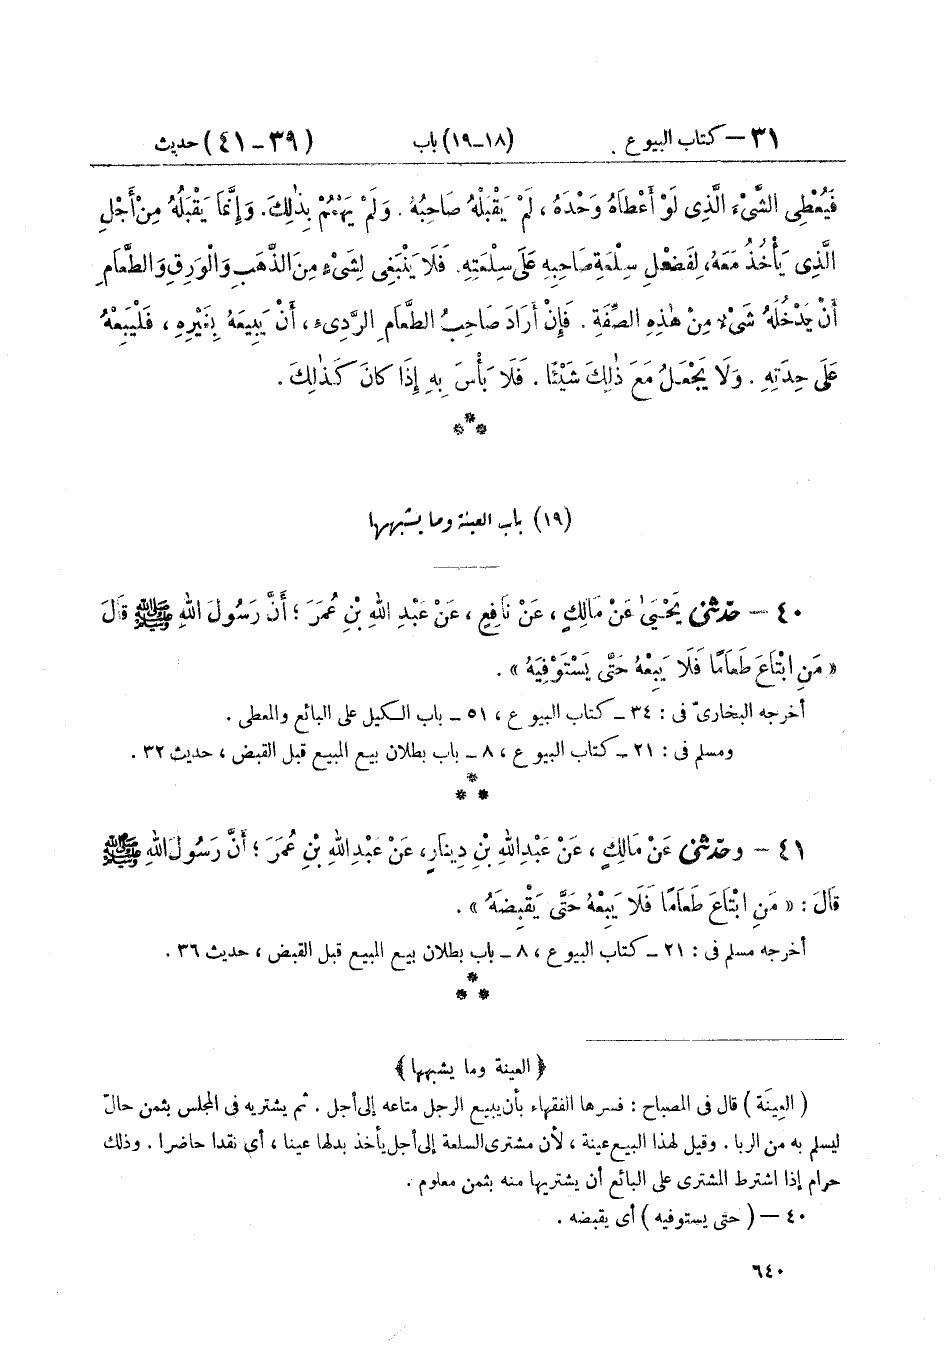 ٣١ – كتاب البيوع . (١٨–١٩) باب (٣٩–٤١) حديث
فَيُعْطِى الشَّىْءَ الَّذِى لَوْ أَعْطَاهُ وَحْدَهُ ، لَمْ يَقْبَلْهُ صَاحِبُهُ . وَلَمْ يَهْمُمْ بِذٰلِكَ . وَإِنَّمَا يَقْبَلُهُ مِنْ أَجْلِ
الَّذِى يَأْخُذُ مَعَهُ ، لِفَضْلِ سِلْعَةِ صَاحِبِهِ عَلَى سِلْعَتِهِ . فَلَا يَنْبَغِى لِشَىْءٍ مِنَ الذَّهَبِ وَالْوَرِقِ وَالطَّعَامِ
أَنْ يَدْخُلَهُ شَىْءٌ مِنْ هٰذِهِ الصِّفَةِ . فَإِنْ أَرَادَ صَاحِبُ الطَّعَامِ الرَّدِىءِ ، أَنْ يَبِيعَهُ بِغَيْرِهِ ، فَلْيَبِعْهُ
عَلَى حِدَتِهِ . وَلَا يَجْعَلُ مَعَ ذٰلِكَ شَيْئًا . فَلَا بَأْسَ بِهِ إِذَا كَانَ كَذٰلِكَ .
***
(١٩) باب العينة وما يشبهها
٤٠ – حدّثنى يَحْيَىٰ عَنْ مَالِكٍ ، عَنْ نَافِعٍ ، عَنْ عَبْدِ اللهِ بْنِ عُمَرَ ؛ أَنَّ رَسُولَ اللهِ ﷺ قَالَ
« مَنِ ابْتَاعَ طَعَامًا فَلَا يَبِعْهُ حَتَّى يَسْتَوْفِيَهُ » .
أخرجه البخارىّ فى : ٣٤ – كتاب البيوع ، ٥١ – باب الكيل على البائع والمعطى .
ومسلم فى : ٢١ – كتاب البيوع ، ٨ – باب بطلان بيع المبيع قبل القبض ، حديث ٣٢ .
***
٤١ – وحدّثنى عَنْ مَالِكٍ ، عَنْ عَبْدِ اللهِ بْنِ دِينَارٍ ، عَنْ عَبْدِ اللهِ بْنِ عُمَرَ ؛ أَنَّ رَسُولَ اللهِ ﷺ
قَالَ : « مَنِ ابْتَاعَ طَعَامًا فَلَا يَبِعْهُ حَتَّى يَقْبِضَهُ » .
أخرجه مسلم فى : ٢١ – كتاب البيوع ، ٨ – باب بطلان بيع المبيع قبل القبض ، حديث ٣٦ .
***
﴿ العينة وما يشبهها ﴾
( العِينَة ) قال فى المصباح : فسرها الفقهاء بأن يبيع الرجل متاعه إلى أجل . ثم يشتريه فى المجلس بثمن حالّ
ليسلم به من الربا . وقيل لهذا البيع عينة ، لأن مشترى السلعة إلى أجل يأخذ بدلها عينا ، أى نقدا حاضرا . وذلك
حرام إذا اشترط المشترى على البائع أن يشتريها منه بثمن معلوم .
٤٠ – ( حتى يستوفيه ) أى يقبضه .
٦٤٠